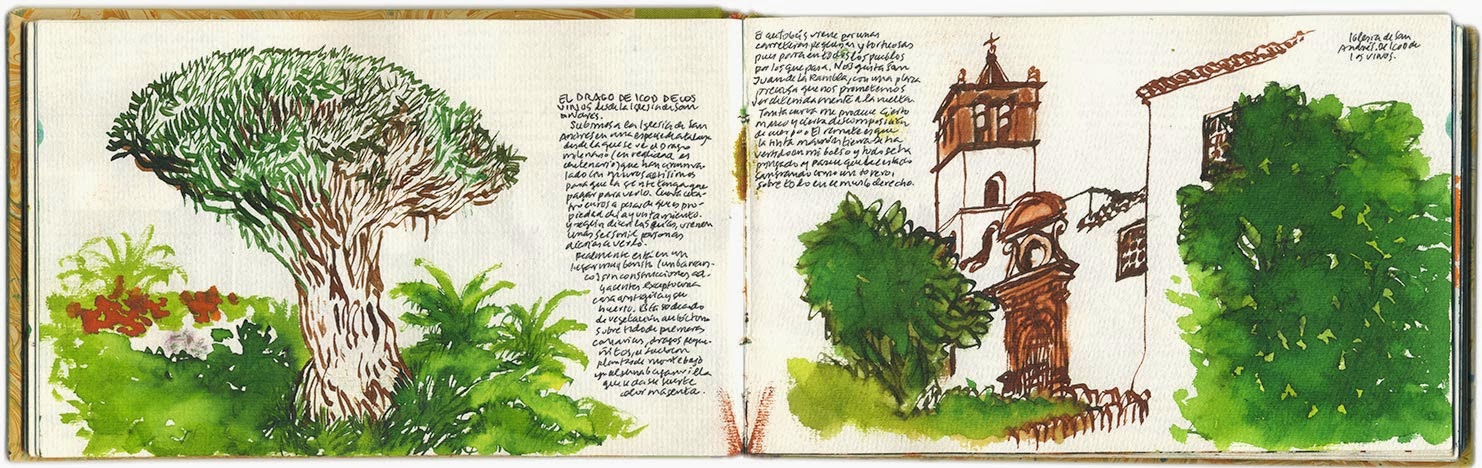 EL DRAGO DE ICOD DE LOS
VINOS desde la iglesia de San
Andrés.
Subimos a la Iglesia de San
Andrés en una especie de atalaya
desde la que se ve el Drago
milenario (en realidad es
centenario) que han amura
lado con muros altísimos
para que la gente tenga que
pagar para verlo. Cuesta cua-
tro euros a pesar de que es pro-
piedad del ayuntamiento.
y según dicen las guías, vienen
unas personas
a verlo.
Realmente está en un
lugar muy bonito (un barran-
co) sin construcciones ad-
yacentes excepto una
casa antigua y su
huerto. Está rodeado
de vegetación autóctona
sobre todo de palmeras
canarias, dragos peque-
ñitos, el suelo con
plantas de monte bajo
que da su fuerte
color magenta.
El autobús viene por unas
carreteras pequeñas y tortuosas
pues para en todos los pueblos
por los que pasa. Nos gusta San
Juan de la Rambla, con una plaza
preciosa que nos prometemos
ver detenidamente a la vuelta.
Tanta curva me produce cierto
mareo y cierta descomposición
de cuerpo. El remate es que
la tinta marrón tierra se ha
vertido en mi bolso y todo se ha
pringado y parece que he estado
sangrando como un torero,
sobre todo en el muslo derecho.
Iglesia de San
Andrés. De Icod de
los Vinos.